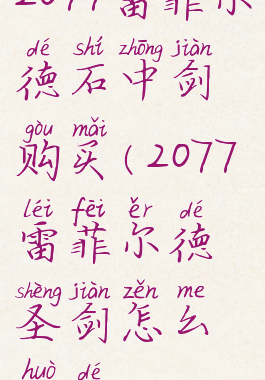 2077雷菲尔
dé shí zhōng jiàn
德石中剑
gòu mǎi
购买(2077
léi fēi ěr dé
雷菲尔德
shèng jiàn zěn me
圣剑怎么
huò dé